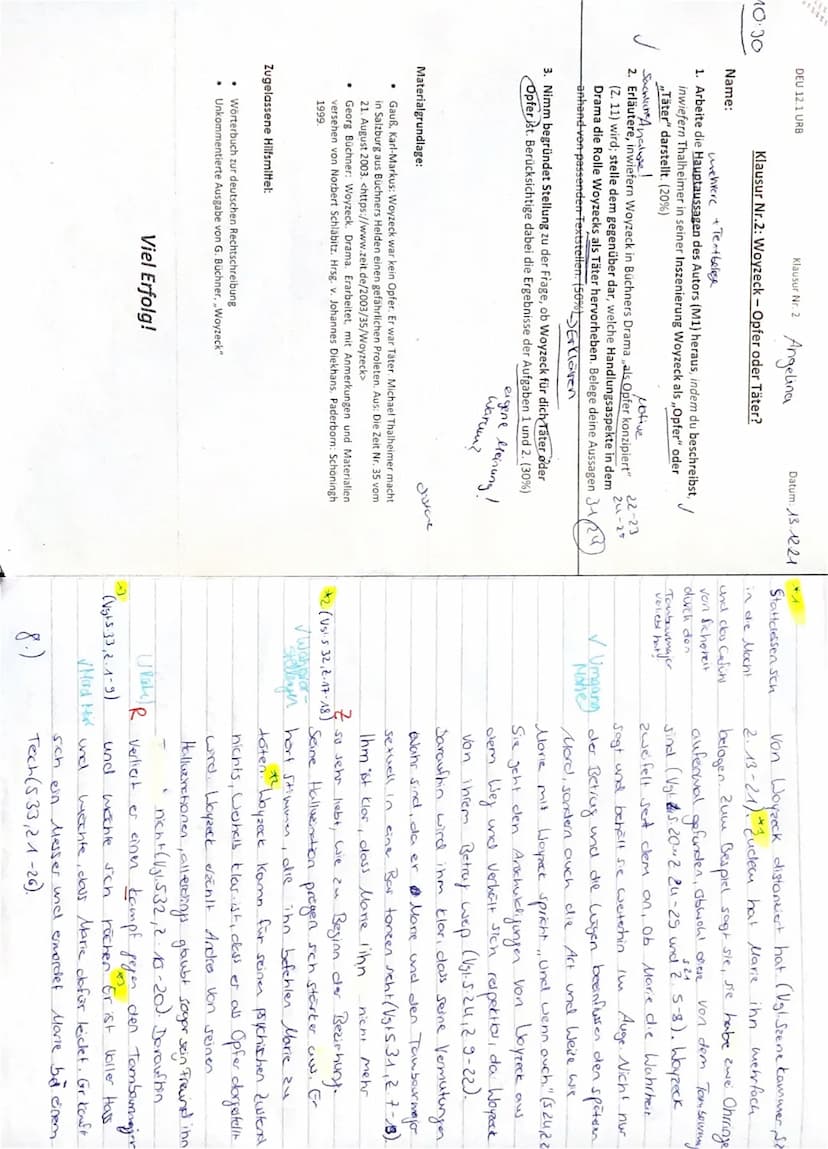 DEU 12.1 URB Klausur Nr. 2 Datum: 13.12.21
Angelina
10:30
Klausur Nr.2: Woyzeck – Opfer oder Täter?
Name:
mehrere + Textbelege
1. Arbeite die Hauptaussagen des Autors (M1) heraus, indem du beschreibst,
inwiefern Thalheimer in seiner Inszenierung Woyzeck als „Opfer" oder
„Täter" darstellt. (20%)
✓
2. Erläutere, inwiefern Woyzeck in Büchners Drama „als Opfer konzipiert"
(Z. 11) wird; stelle dem gegenüber dar, welche Handlungsaspekte in dem
Drama die Rolle Woyzecks als Täter hervorheben. Belege deine Aussagen
anhand von passenden Textstellen. (50%) → Erklären
Motive
22-23
24-25
31 24
3. Nimm begründet Stellung zu der Frage, ob Woyzeck für dich Täter oder
Opfer ist. Berücksichtige dabei die Ergebnisse der Aufgaben 1 und 2. (30%)
eigene Meinung!
Warum?
Materialgrundlage:
• Gauß, Karl-Markus: Woyzeck war kein Opfer: Er war Täter. Michael Thalheimer macht
in Salzburg aus Büchners Helden einen gefährlichen Proleten. Aus: Die Zeit Nr. 35 vom
21. August 2003. <https://www.zeit.de/2003/35/Woyzeck>
• Georg Büchner: Woyzeck. Drama. Erarbeitet, mit Anmerkungen und Materialien
versehen von Norbert Schläbitz. Hrsg. v. Johannes Diekhans. Paderborn: Schöningh
1999.
Zugelassene Hilfsmittel:
• Wörterbuch zur deutschen Rechtschreibung
• Unkommentierte Ausgabe von G. Büchner, „Woyzeck"
Viel Erfolg!
*1
Stattdessen sich
in die Macht
und das Gefühl
von Sicherheit
durch den
Tambourmajor
verliebt hat!
von Woyzeck distanziert hat (Vgl. Szene Kammer, S.
Z. 13-21) *1 Zudem hat Marie ihn mehrfach
belogen. Zum Beispiel sagt sie, sie habe zwei Ohrringe
auf einmal gefunden, obwohl diese von dem Tambourmajor
sind (Vgl. S. 20 Z. 24-25 und S 21 Z. 5-8). Woyzeck
zweifelt seit dem an, ob Marie die Wahrheit
sagt und behält sie weiterhin im Auge. Nicht nur
der Betrug und die Lügen beeinflussen den späteren
Mord, sondern auch die Art und Weise wie
Marie mit Woyzeck spricht „Und wenn auch" (S 24, Z 2
Sie geht den Anschuldigungen von Woyzeck aus
dem Weg und verhält sich respektlos, da Woyzeck
von ihrem Betrug weiß (Vgl. S. 24, Z 9-22).
Daraufhin wird ihm klar, dass seine Vermutungen
Wahr sind, da er Marie und den Tambourmajor
sexuell in einer Bar tanzen sieht (Vgl. S 31, Z 7-13).
Ihm ist klar, dass Marie ihn nicht mehr
so sehr liebt, wie zu Beginn der Beziehung.
Seine Halluzination prägen sich stärker aus. Er
hört Stimmen, die ihn befehlen Marie zu
töten *2 Woyzeck kann für seinen psychischen Zustand
nichts, weshalb klar ist, dass er als Opfer dargestellt
wird. Woyzeck erzählt Andres von seinen
Halluzinationen, allerdings glaubt sogar sein Freund ihn
nicht (Vgl. S 32, Z. 18-20). Daraufhin
verliert er einen Kampf gegen den Tambourmajor
und möchte sich rächen *3 Er ist voller Hass
und möchte, dass Marie dafür leidet. Er kauft
sich ein Messer und ermordet Marie bei einem
Teich (S 33, Z 1-26).
✓ Umgang
Nähe
*2 (Vgl. S 32, Z. 17-18)
Z
R
*3
(Vgl. S 33, Z. 1-9)
8.)